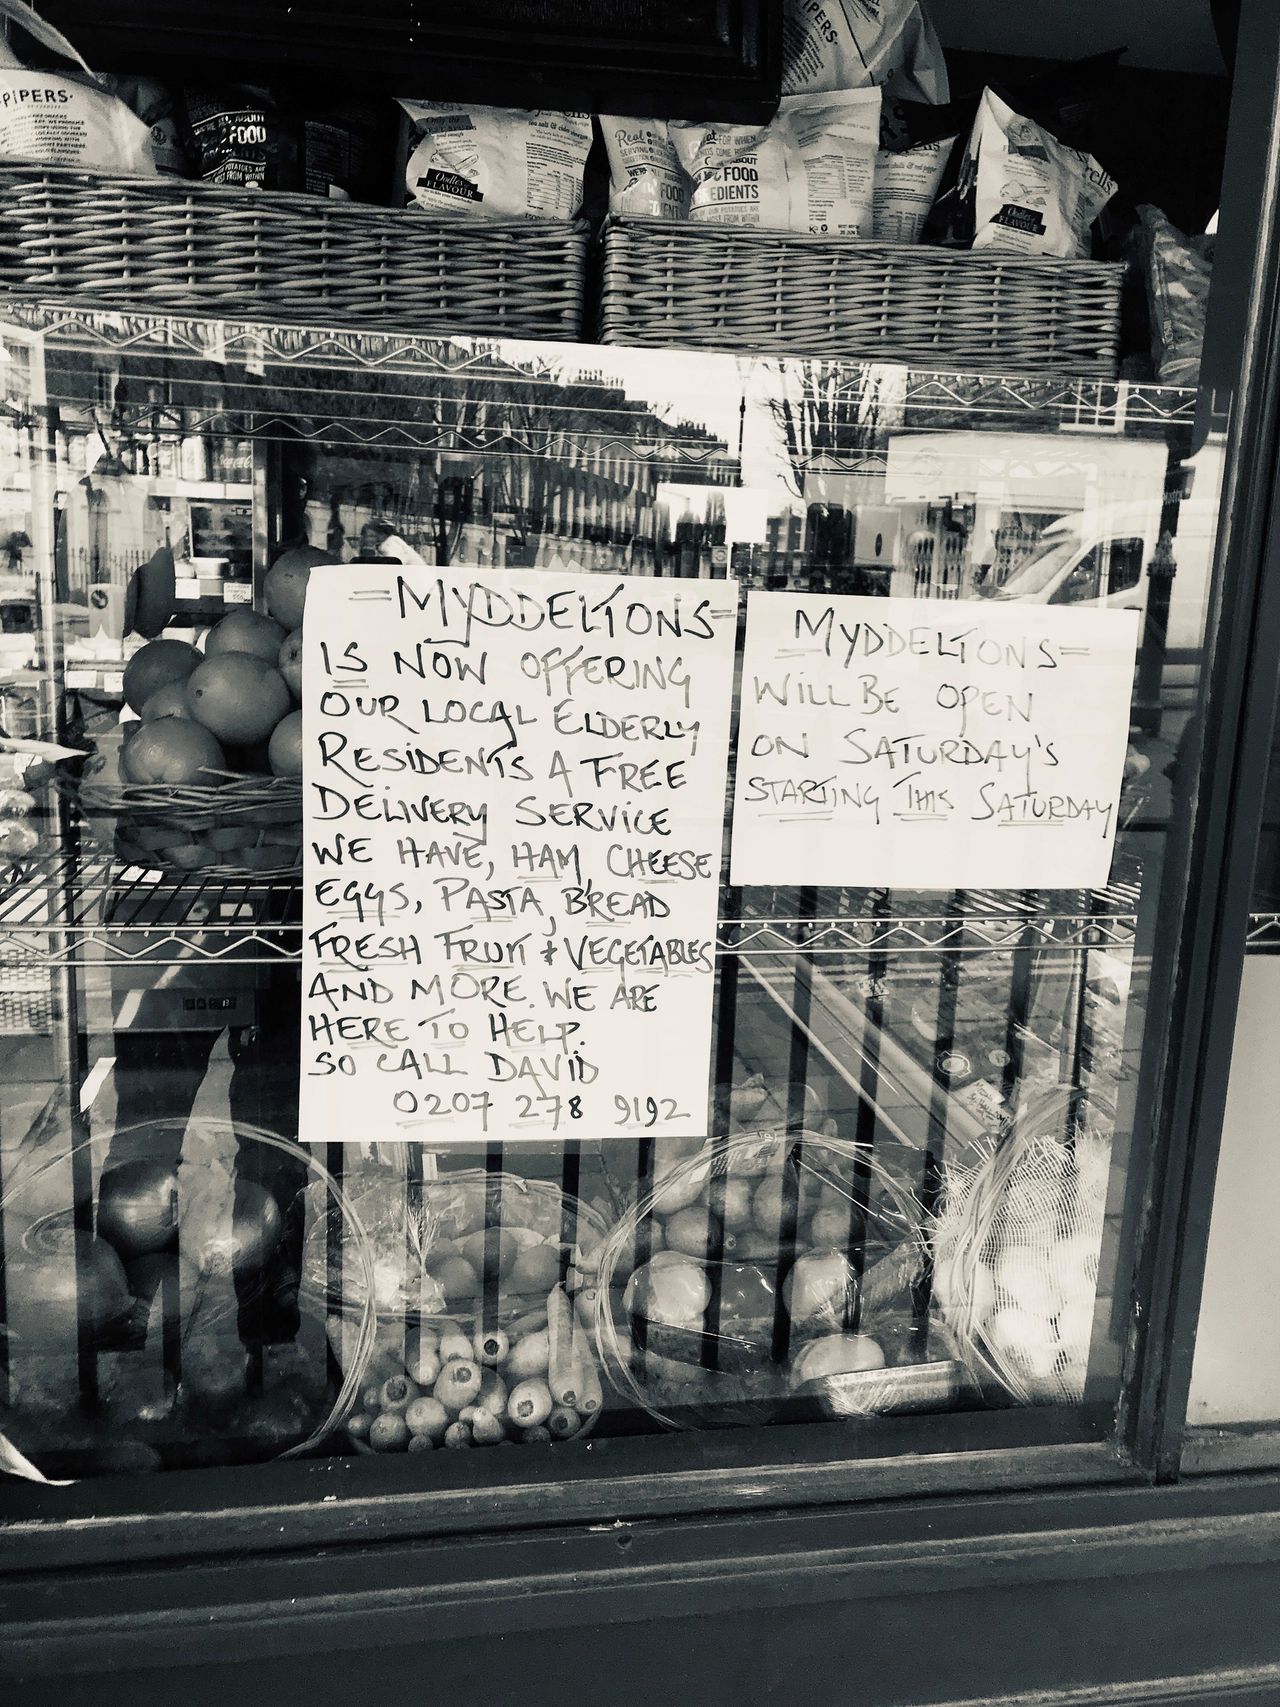 PIPERS
ALL ABOUT
FOOD
Oodles of
FLAVOUR
Real
FOOD
FOR WHEN
ABOUT
FOOD
Oodles of
FLAVOUR
=MYDDELTONS=
IS NOW OFFERING
OUR LOCAL ELDERLY
RESIDENTS A FREE
DELIVERY SERVICE
WE HAVE, HAM, CHEESE
EGGS, PASTA, BREAD
FRESH FRUIT & VEGETABLES
AND MORE. WE ARE
HERE TO HELP.
SO CALL DAVID
0207 278 9192
=MYDDELTONS=
WILL BE OPEN
ON SATURDAY'S
STARTING THIS SATURDAY